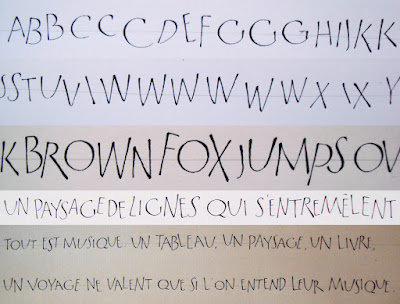 ABBCCCDEFGGGHIJKK
SSTUVIWWWWWWWXIXY
KBROWNFOXJUMPSOV
UN PAYSAGE DE LIGNES QUI S'ENTREMÊLENT
TOUT EST MUSIQUE. UN TABLEAU, UN PAYSAGE, UN LIVRE,
UN VOYAGE NE VALENT QUE SI L'ON ENTEND LEUR MUSIQUE.